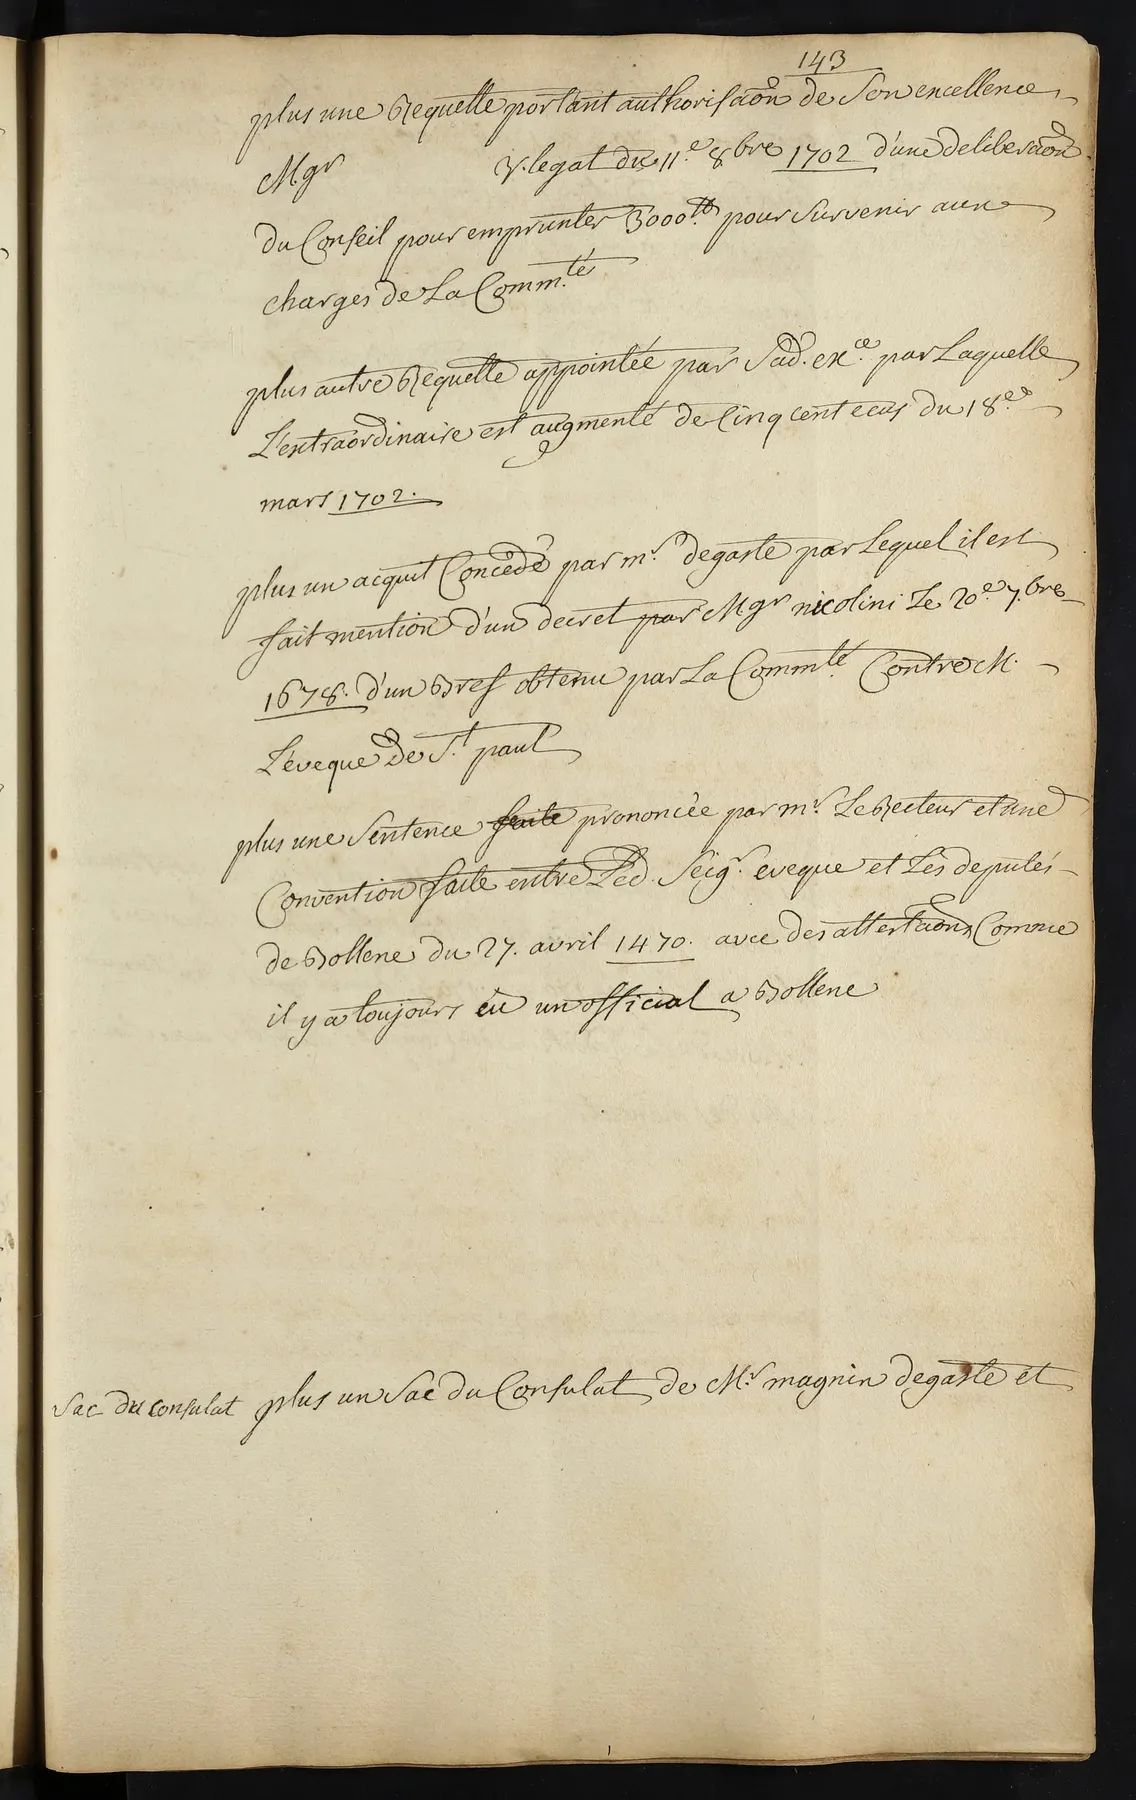 143
plus une Requette portant authorisaõn de Son excellence
Mgr V. legat du 11.e 8bre 1702 d'une deliberaõn
du Conseil pour emprunter 3000.tt pour survenir aux
charges de La Comm.té
plus autre Requette appointée par Sad. ex.ce par Laquelle
L'extraordinaire est augmenté de Cinq cent ecus du 18.e
mars 1702.
plus un acquit Concédé par m.r degaste par Lequel il est
fait mention d'un decret par Mgr nicolini Le 20.e 7.bre
1678. d'un Bref obtenu par La Comm.té Contre M.
L'eveque de S.t paul
plus une Sentence faite prononcée par m.r Le Recteur et une
Convention faite entre Led. Seig.r eveque et Les deputés
de Bollene du 27. avril 1470. avec des attestaõns Comme
il y a toujours eu un official a Bollene
Sac du consulat plus un Sac du Consulat de M.r magnin degaste et